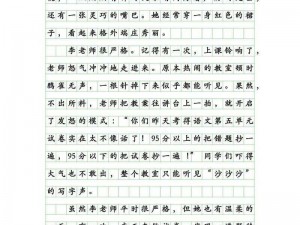 还有一张灵巧的嘴巴。她经常穿一身红色的裙
子，看起来格外端庄秀丽。
李老师很严格。记得有一次，上课铃响了，
老师怒气冲冲地走进来。原本热闹的教室顿时
鸦雀无声，一根针掉下来似乎都能听见。果然，
不出所料，老师把教案往讲台上一拍，就开启
了发怒的模式：“你们昨天考得语文第五单元
试卷实在太不像话了！95分以上的把错题抄一
遍，95分以下的把试卷抄一遍！”同学们吓得
大气也不敢出，整个教室只能听见“沙沙沙”
的写字声。
虽然李老师平时很严格，但她也有温柔